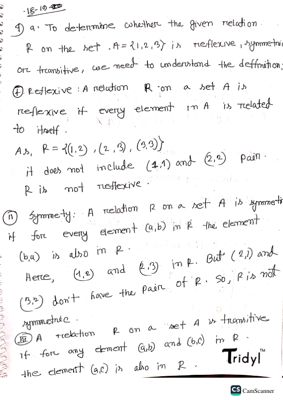 -18-10-
1) a. To determine whether the given relation
R on the set A = {1,2,3} is reflexive, symmetric
or transitive, we need to understand the definition,
(i) Reflexive : A relation R on a set A is
reflexive if every element in A is related
to itself.
As, R = {(1,2), (2,3), (3,3)}
it does not include (1,1) and (2,2) pair.
R is not reflexive.
(ii) Symmety: A relation R on a set A is symmetri
if for every element (a,b) in R the element
(b,a) is also in R.
Here, (1,2) and (2,3) in R. But (2,1) and
(3,2) don't have the pair of R. So, R is not
symmetric.
(iii) A relation R on a set A is transitive
if for any element (a,b) and (b,c) in R.
the element (a,c) is also in R.
Tridyl™
CS CamScanner